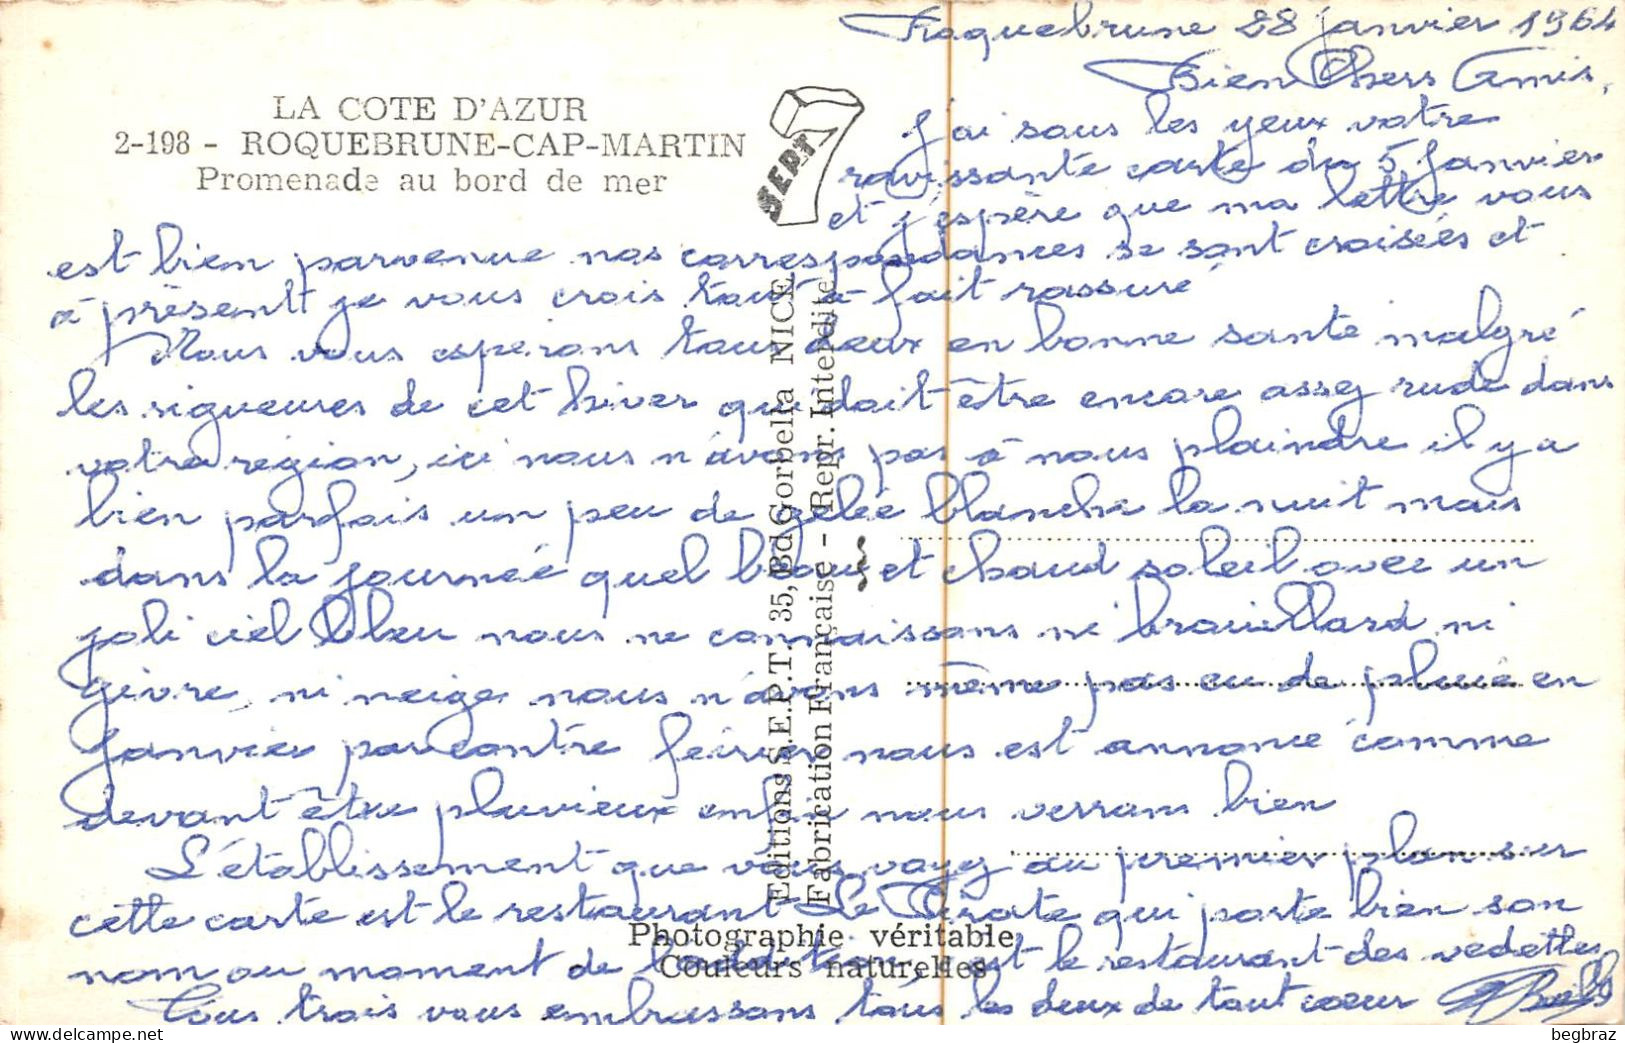 Roquebrune 28 janvier 1964
Bien Chers Amis,
LA COTE D'AZUR
2-198 - ROQUEBRUNE-CAP-MARTIN
Promenade au bord de mer
SEPT
J'ai sous les yeux votre
ravissante carte du 5 Janvier
et j'espère que ma lettre vous
est bien parvenue nos correspondances se sont croisées et
à présent je vous crois tout à fait rassuré
Nous vous esperons tous deux en bonne santé malgré
les rigueures de cet hiver qui doit être encore assez rude dans
votre région, ici nous n'avons pas à nous plaindre il y a
bien parfois un peu de gelée blanche la nuit mais
dans la journée quel beau et chaud soleil avec un
joli ciel bleu nous ne connaissons ni brouillard ni
givre, ni neige nous n'avons même pas eu de pluie en
Janvier par contre feivrer nous est annoncé comme
devant être pluvieux enfin nous verrons bien
L'établissement que vous voyez au premier plan sur
cette carte est le restaurant Le Pirate qui porte bien son
nom au moment de l'addition, c'est le restaurant des vedettes
Tous trois vous embrassons tous les deux de tout coeur
Editions S.E.P.T. 35, Bd Gorbella NICE
Fabrication Française - Repr. Interdite
Photographie véritable
Couleurs naturelles
delcampe.net
begbraz